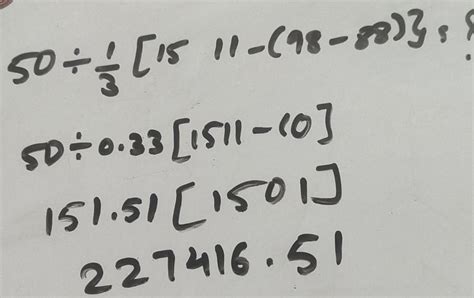 50÷1/3[15 11-(98-88)}=?
50÷0.33[1511-10]
151.51[1501]
227416.51